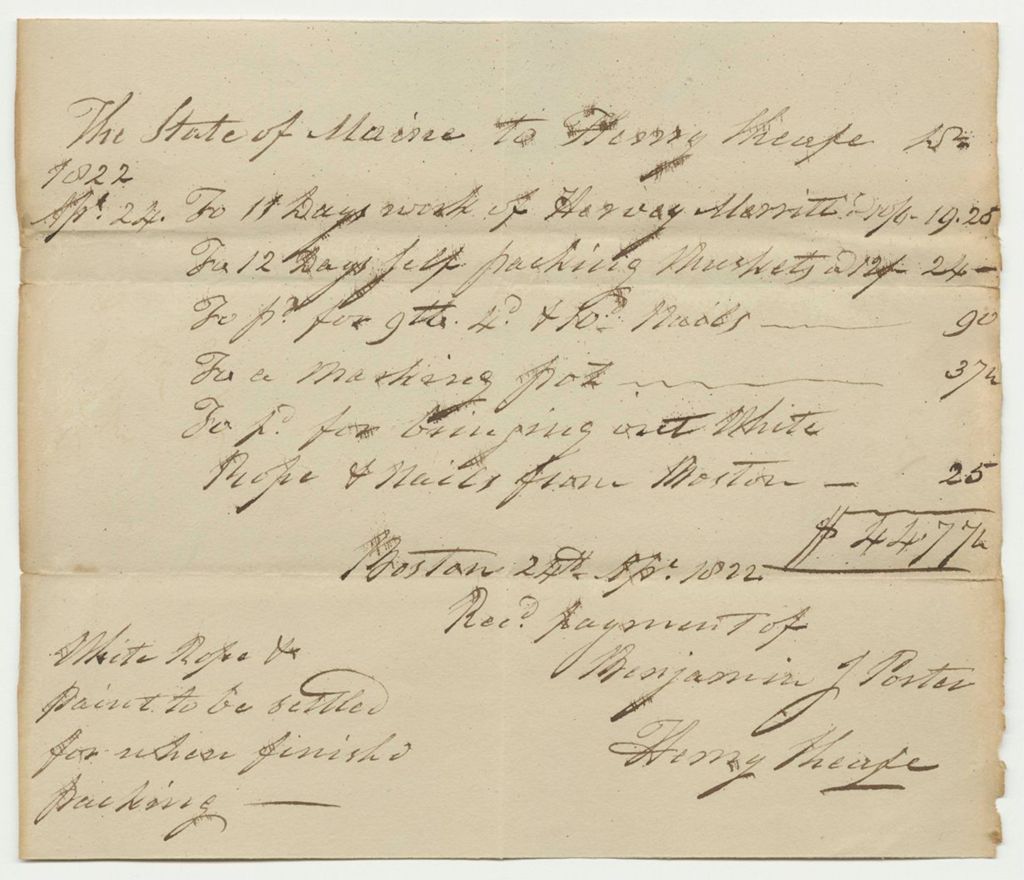 The State of Maine to Henry Sheafe Dr
1822
Apr. 24. To 11 Days work of Harvey Merrill a 10/6 - 19.25
To 12 Days self packing Muskets a 12/ 24 -
To pd for 9 lb. 4d & 10d Nails 90
To a marking pot 37½
To pd for bringing out White
Rope & Nails from Boston - 25
$ 44 77½
Boston 24th Apr. 1822
Recd payment of
Benjamin J Porter
Henry Sheafe
White Rope &
paint to be settled
for when finishd
packing